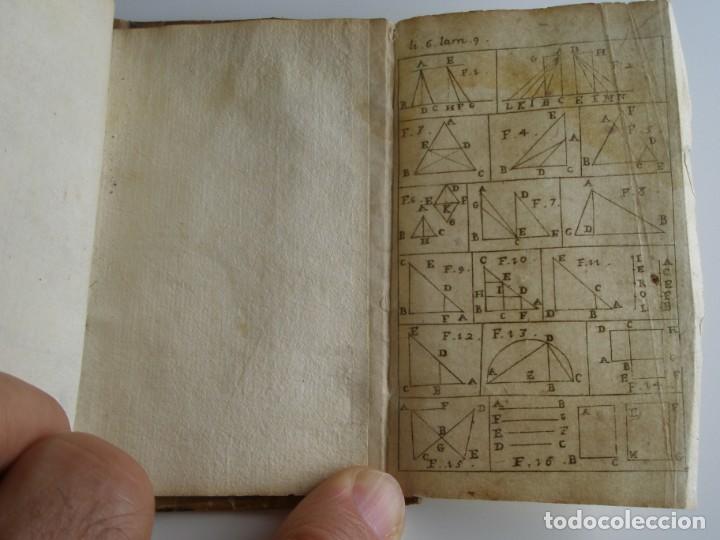 li. 6. lam. 9.
A E F. 1.
B D C H F G
G A D H F. 2.
L K I B C E I M N
F. 3. A
E D
B C
F. 4. E
A
B D C
F
A F. 5.
D
B C E
F. 6. D
E F
A K
G
B H C
A D F. 7.
G
B C E
A F. 8.
G D B
C E
F. 9. D
B F A
C F. 10.
E
H I D
B C F A
E F. 11.
C
D B A
I A
E C
R E
O F
L B
E F. 12.
D
C B A
F. 13. D
A E B C
D C H
A B G
E F. 14.
A F D
B
G
C E
F. 15.
A B
F
E
D C
F. 16.
A
B C
E F
G
todocoleccion.net